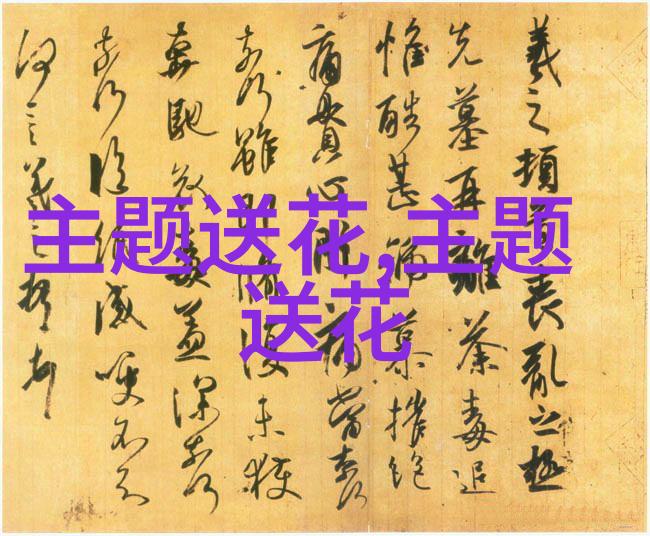 主题送花,主题
送花
羲之頓首喪亂之極
先墓再離荼毒追
惟酷甚號慕摧絕
痛貫心肝痛當奈何
奈何雖即脩復未獲
奔馳哀毒益深奈何
奈何臨紙感哽不知
何言羲之頓首